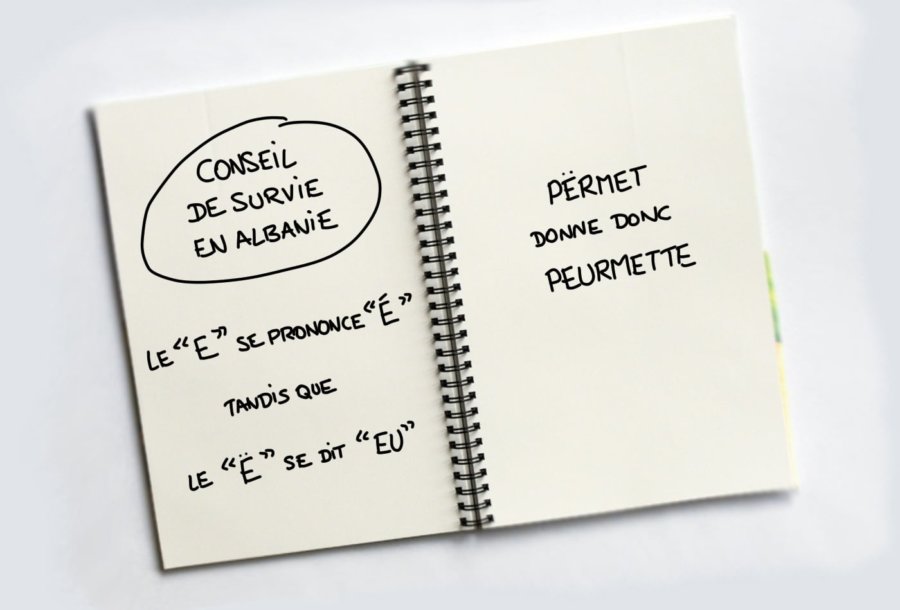 CONSEIL
DE SURVIE
EN ALBANIE
LE “E” SE PRONONCE “É”
TANDIS QUE
LE “Ë” SE DIT “EU”
PËRMET
DONNE DONC
PEURMETTE